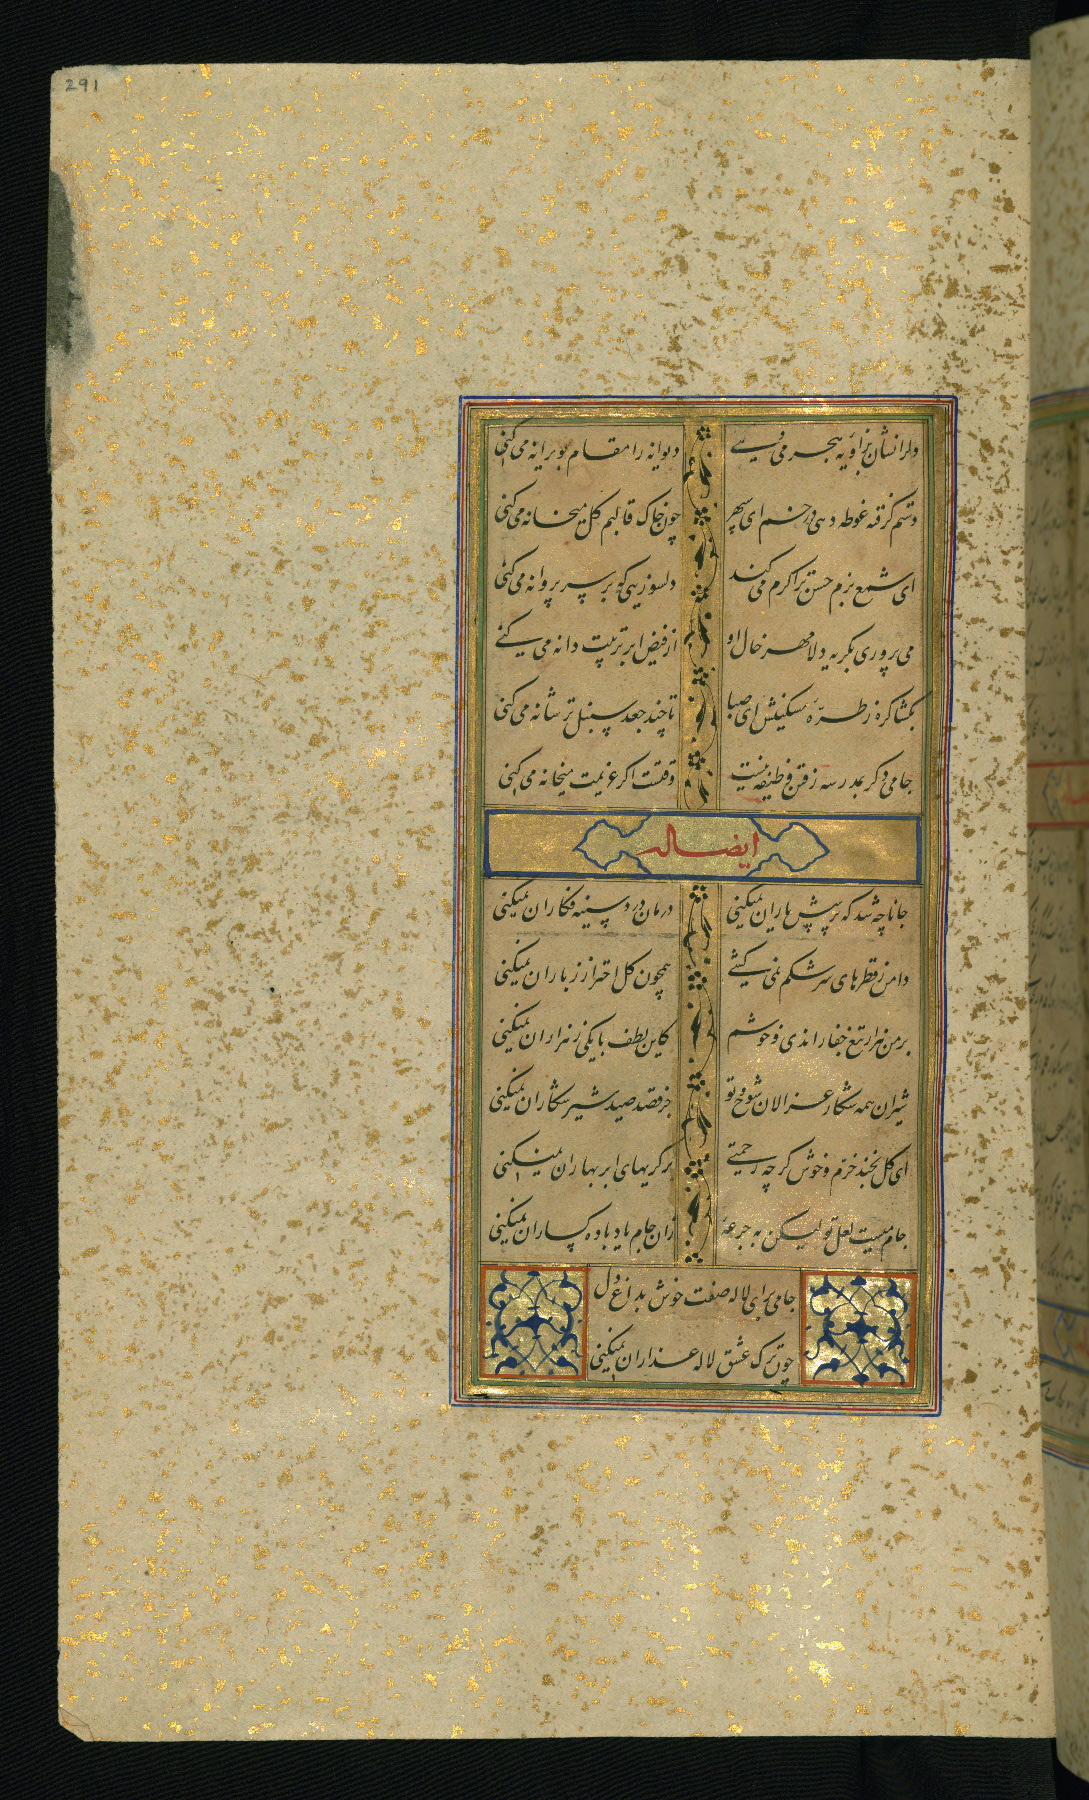 291
دلرا نشان بزاویه هجر می دهی دیوانه را مقام بویرانه می کنی
دستم گرفته غوطه دهی در خم ای سپهر چون خاک قالبم گل میخانه می کنی
ای شمع بزم حسن ترا کرم می کند دلسوزیی که بر سر پروانه می کنی
می پروری بگریه دلا مهر خال او از فیض ابر تربیت دانه می کنی
بگشا گره ز طرّهٔ مشکینش ای صبا تا چند جعد سنبل تر شانه می کنی
جامی دگر بمدرسه رفتن وظیفه نیست وقتست اگر عزیمت میخانه می کنی
ایضا له
جانا چه شد که پرسش یاران نمیکنی درمان درد سینه فکاران نمیکنی
دامن ز قطرهای سرشکم نمی کشی همچون گل احتراز ز باران نمیکنی
بر من هزار تیغ جفا راندی و خوشم کاین لطف با یکی ز هزاران نمیکنی
شیران همه شکار غزالان شوخ تو جز قصد صید شیر شکاران نمیکنی
ای گل بخند خرّم و خوش گر چه رحمتی بر گریهای ابر بهاران نمیکنی
جام میست لعل تو لیکن به جرعهٔ زان جام یاد باده کساران نمیکنی
جامی برای لاله صفت خوش بداغ دل
چون ترک عشق لاله عذاران نمیکنی